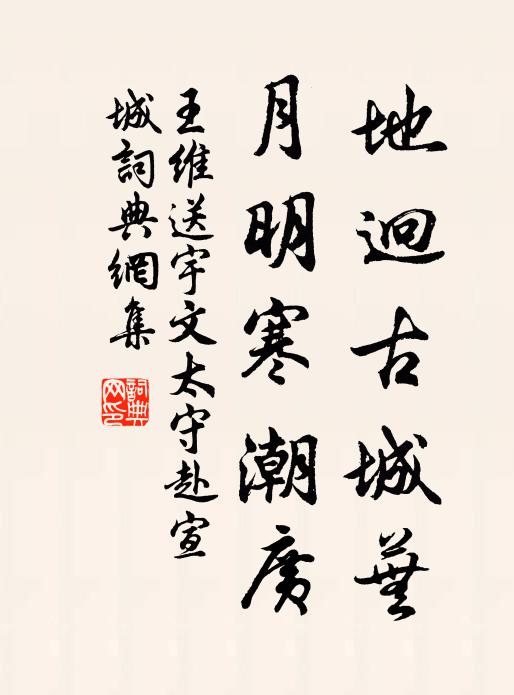 地迥古城蕪
月明寒潮廣
王維送宇文太守赴宣
城詞典網集
詞典
网印